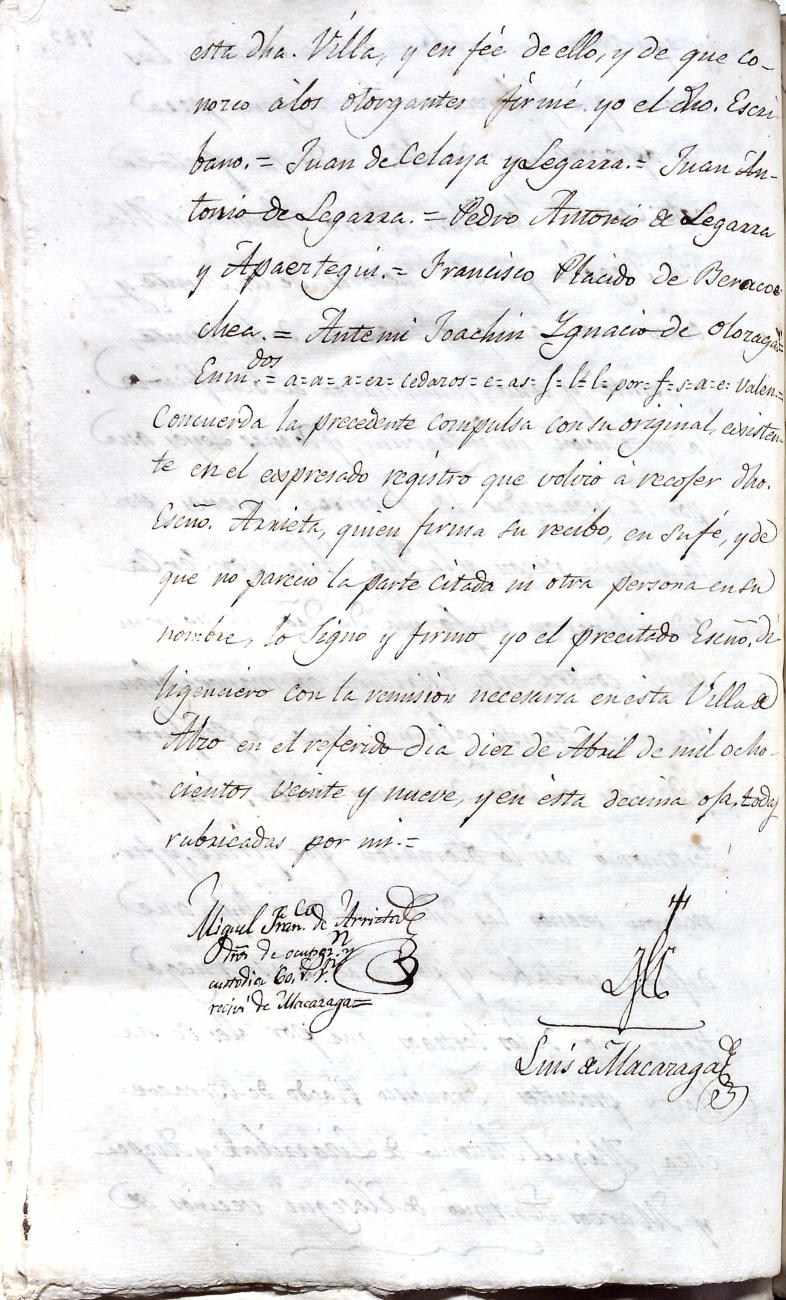 esta dha. Villa, y en fée de ello, y de que co-
nozco à los otorgantes firmé yo el dho. Escri-
bano.= Juan de Celaya y Legarra.= Juan An-
tonio de Legarra.= Pedro Antonio de Legarra
y Apaeztegui.= Francisco Placido de Beracoe-
chea.= Antemi Joachin Ygnacio de Olozaga=
Enmdos.= a= a= x= er= cedazos= e= as= f= l= l= por= f= s= a= e= valen=
Concuerda la precedente compulsa con su original, existen-
te en el expresado registro que volvió à recojer dho.
Escño. Arrieta, quien firma su recibo, en su fé, y de
que no pareció la parte citada ni otra persona en su
nombre, lo signo y firmo yo el precitado Escño. di-
ligenciero con la remision necesaria en esta Villa de
Alzo en el referido dia diez de Abril de mil ocho-
cientos veinte y nueve, y en esta decima oja, todas
rubricadas por mi.=
Miguel Franco. de Arrieta
Dros de ocupon. y
custodia 60 rs. vn.
reciví de Macazaga=
Luis de Macazaga